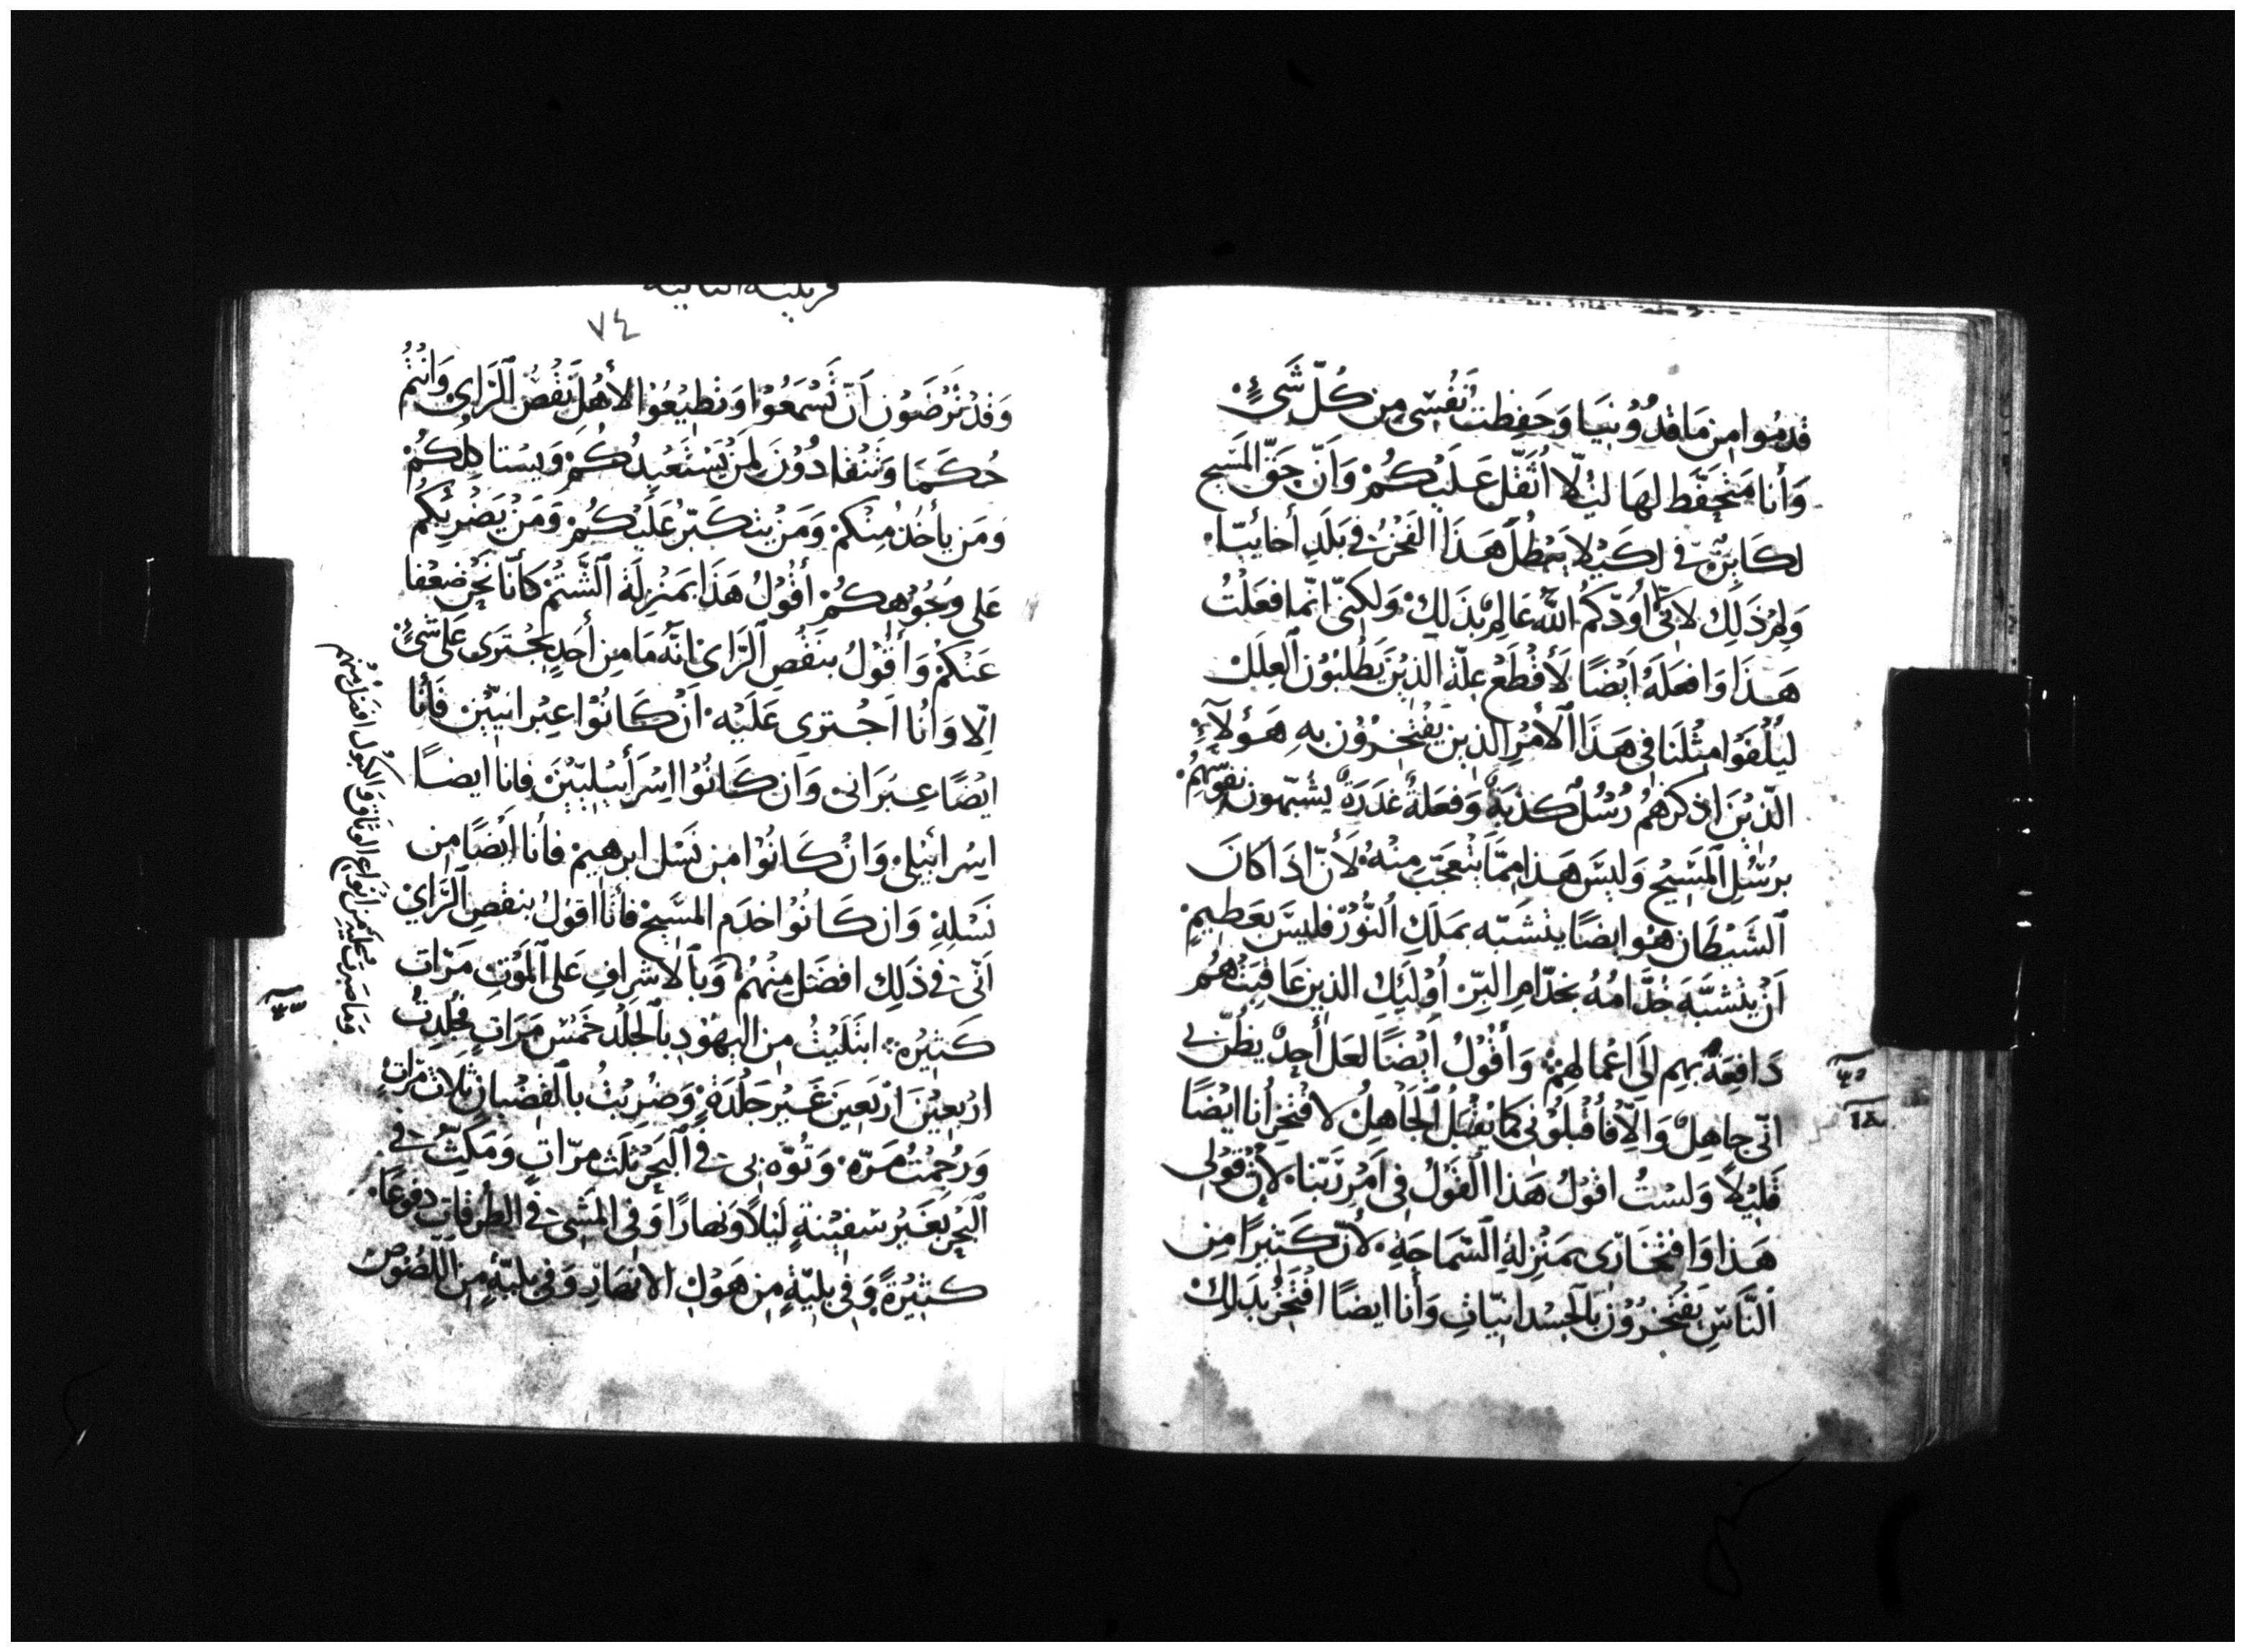 قدموا من ماقدونيا وَحَفِظتُ نَفْسِى مِن كُلّ شَىءٍ
وَأنا متحَفّط لهَا ليُلّا اُثَقّل عَلَيْكُمْ وَأنّ حَقّ المَسِيح
لكَابِنٌ فى لكَيْلا يَبْطُلْ هَذَا الفَخْرُ فى بَلَدِ أخائِيّا
وَلِمَ ذَلِكَ لانّى اُودّكمُ اللّهُ عَالِمٌ بذَلِكَ وَلكِنّى انّما فعَلْتُ
هَذَا وَافعَلهُ أيْضًا لَأقْطَعْ عِلّة الذِيْنَ يَطْلبُوْن العِلَل
ليُلْفَوا مِثْلَنا فى هَذَا الأمْرِ الذِين يَفتَخِرُوْن بهِ هَؤلآءِ
الّذِيْنَ اذكرهُم رُسُلٌ كذبَةٌ وَفعَلةٌ غدَرَةٌ يُشبّهون نفوسَهُمْ
برُسُلِ المَسِيْحِ وَليسَ هَذا مِمّا يتعَجّب مِنْهُ لأنّ اذَا كانَ
الشَيْطَان هُو ايضًا يتشَبّه بمَلَكِ النُّوْرِ فليسَ بعَظيمٍ
اَنْ يتشبّهَ خُدّامُهُ بخدّامِ البِرّ اُوليك الذِين عَاقِبَتُهُم
دَافِعَةٌ بهِم اِلَى اعْمالِهِمْ وَأقُوْلُ ايْضًا لعَل أحِدٌ يظُنّ بى
انّى جاهِلٌ وَالّا فَأقْبلُوْنى كمَا يُقْبَلُ الجَاهِلُ لافتَخِرَ أنا ايْضًا
قليْلاً وَلسْتُ اقوْلُ هَذَا القَوْلُ فى اَمْرِ رَبّنا لأنّ قوْلى
هَذا وَافتخَارِى بمَنْزلةِ السّمَاجَةِ لأنّ كَثيرًا مِن
النّاسِ يَفْتَخِرُوْن بالجسْدانِيّات وَأنا ايضًا افتَخِرُ بذلِكَ
٧٤
وَقدْ تَرْضَوْن اَنّ تَسْمَعُوْا وَتُطِيْعُوْا لأهْلِ نَقْصُ الرَاىِ وَانتُمْ
حُكَمَا وَتَنْقادُوْنَ لِمَنْ يَسْتَعْبِدُكُمْ وَيسْتاكلكُمْ
وَمَن يأخُذُ مِنكمْ وَمَنْ يتكَبّرُ عَلَيْكُمْ وَمَنْ يَضْربُكُمْ
عَلى وُجُوْهِكُمْ أقُوْلُ هَذَا بمَنْزِلَةِ الشَّتمِ كأنّا نَحْن ضعَفا
عَنكُمْ وَأقُوْلُ بنَقْصِ الرَّاىِ انّهُ مَا مِن أحَدٍ يجْترِى عَلَى شىءٍ
اِلّا وَأنا اَجْترِى عَلَيْه اَنْ كَانُوْا عِبْرانيّيْنَ فَأنا
ايْضًا عِبرَانى وَان كَانُوْا اِسْرَأييْليّيْنَ فانا ايضًا
اِسْرائِيْلى وَانْ كَانُوْا مِن نَسْلِ ابرهيمْ فأنا اَيْضًا مِن
نَسْلِهِ وَان كَانُوْا خدَم المسَيح فأنا اقوْلُ بنقصِ الرَّايِ
اَنّى فى ذَلِك افضَل مِنْهُم وَبالاشرافِ عَلى الموْتِ مَرّات
كَثِيْرَه ابتَلَيْتُ من اليهُوْدِ بالجَلْد خَمْسَ مَرَاتٍ جُلِدتُ
اربَعِيْنَ اَرْبَعِيْنَ غَيْر جَلْدَةٍ وَضُرِبْتُ بالقضْبان ثلاث مَرّاتٍ
وَرُجِمْتُ مَرّه وَتُوّه بى فى البَحْر ثلَث مرّاتٍ وَمَكثْت فى
البَحْر بغَيْر سَفِيْنةٍ لَيْلاً وَنهارًا وَفى المَشْى فى الطُرقاتِ دفوعًا
كثِيْرَةً وَفى بليّةٍ مِن هَوْل الانهَارِ وَفى بليّةٍ مِن اللصُوْص
وَمَا صَبرتُ عليْهِ مِن انْوَاع الوثاق وَالكبُول افضَل مِنْهم